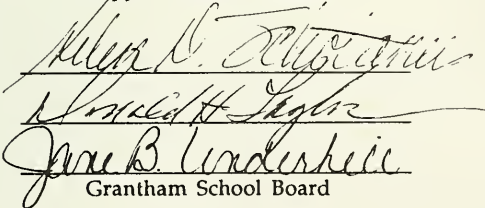 Helen D.
Donald H Taylor
Jane B. Underhill
Grantham School Board